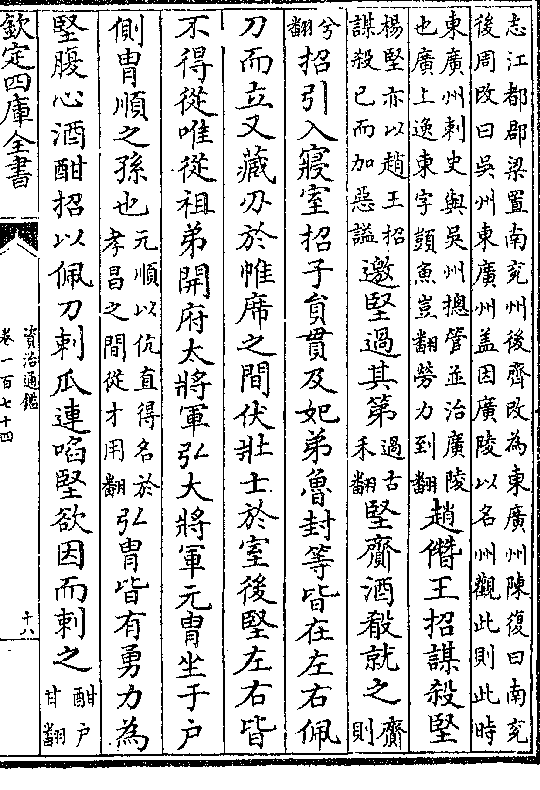 志江都郡梁置南兖州後齊改為東廣州陳復曰南兖
後周改曰吳州東廣州盖因廣陵以名州觀此則此時
東廣州刺史與吳州摠管並治廣陵
也廣上逸東字顗魚豈翻勞力到翻
趙僭王招謀殺堅
楊堅亦以趙王招
謀殺已而加惡謚
邀堅過其第
過古
禾翻
堅齎酒殽就之
齎
則
兮
翻
招引入寢室招子貟貫及妃弟魯封等皆在左右佩
刀而立又藏刃於帷席之間伏壯士於室後堅左右皆
不得從唯從祖弟開府太將軍弘大將軍元胄坐于户
側胄順之孫也
元順以伉直得名於
孝昌之間從才用翻
弘胄皆有勇力為
堅腹心酒酣招以佩刀刺瓜連啗堅欲因而刺之
酣户
甘翻
欽定四庫全書
資治通鑑
卷一百七十四
十八